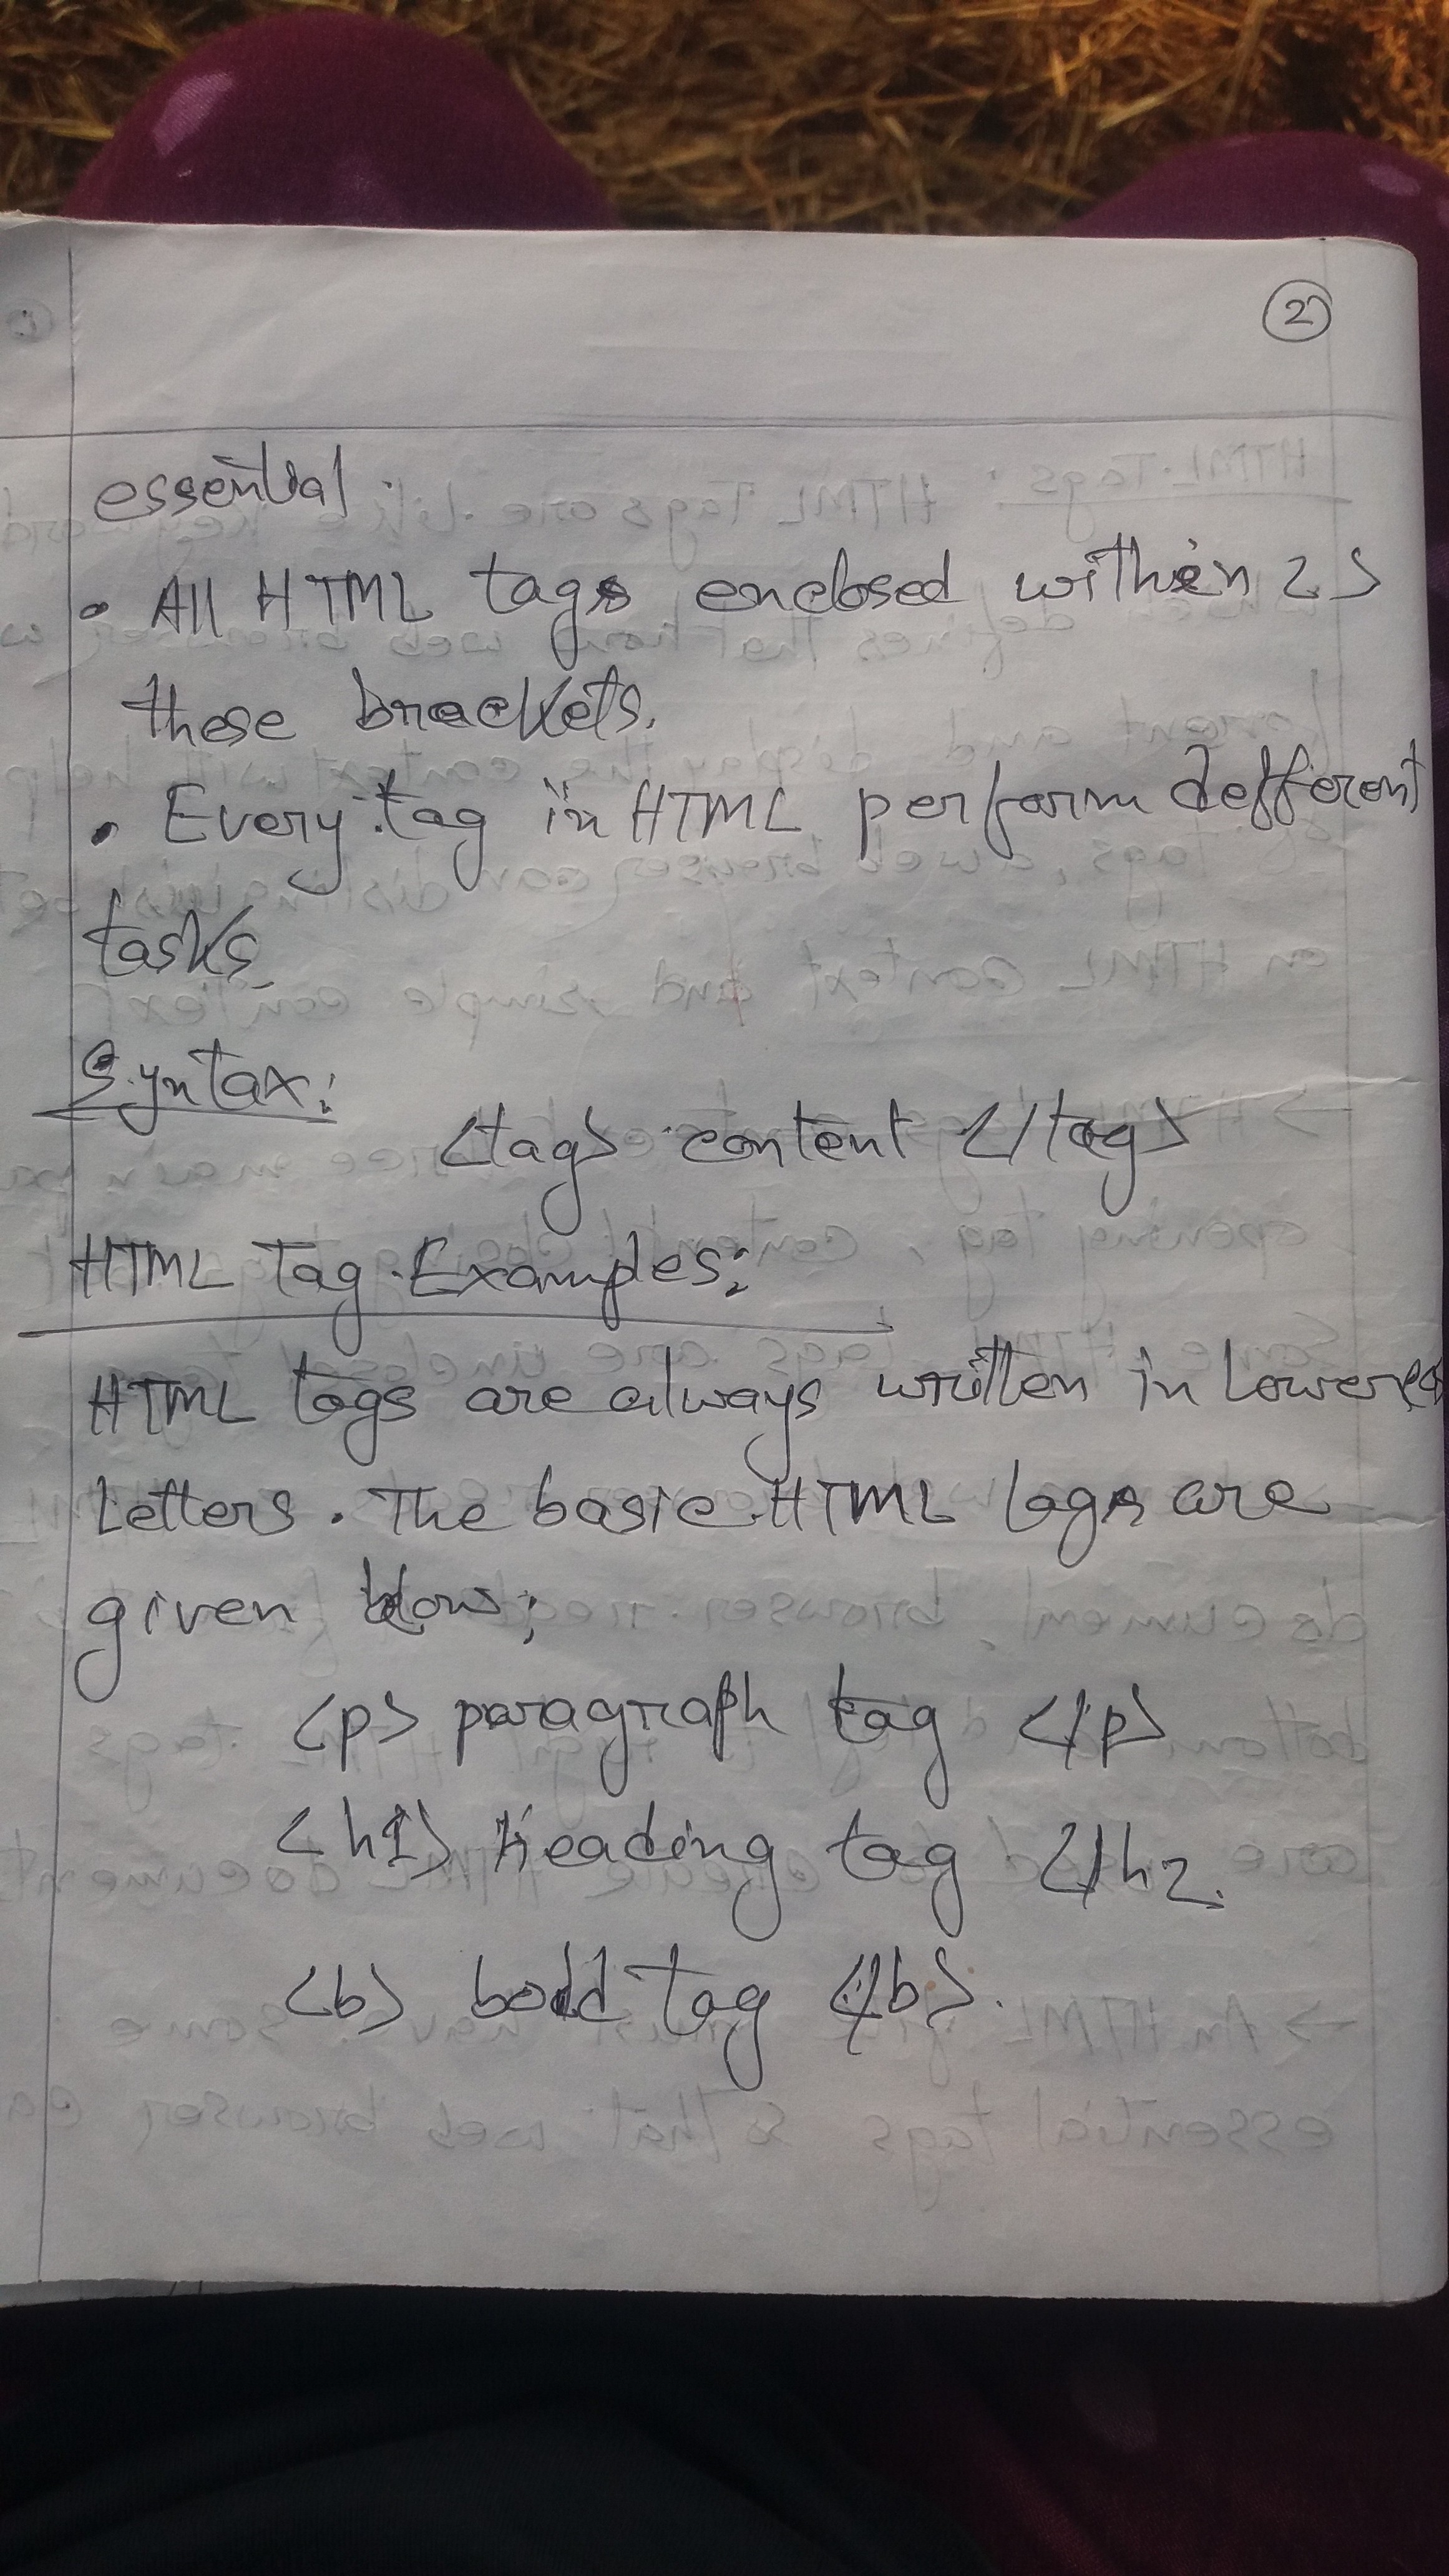 2
essential.
• All HTML tags enclosed within < >
these brackets.
• Every tag in HTML perform defferent
tasks.
Syntax:
<tag> content </tag>
HTML Tag Examples:
HTML tags are always written in Lowercas
Letters. The basic HTML tags are
given blow;
<p> paragraph tag </p>
<h1> Heading tag </h2.
<b> bold tag </b>.